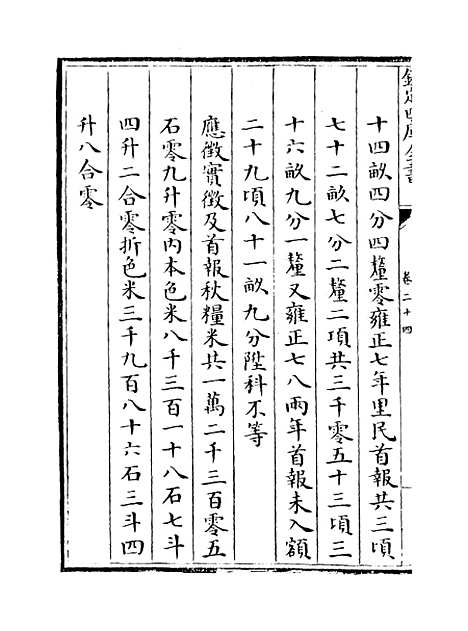 欽定四庫全書
卷二十四
十四畝四分四釐零雍正七年里民首報共三項
七十二畝七分二釐二項共三千零五十三頃三
十六畝九分一釐又雍正七八兩年首報未入額
二十九頃八十一畝九分陞科不等
應徵實徵及首報秋糧米共一萬二千三百零五
石零九升零內本色米八千三百一十八石七斗
四升二合零折色米三千九百八十六石三斗四
升八合零